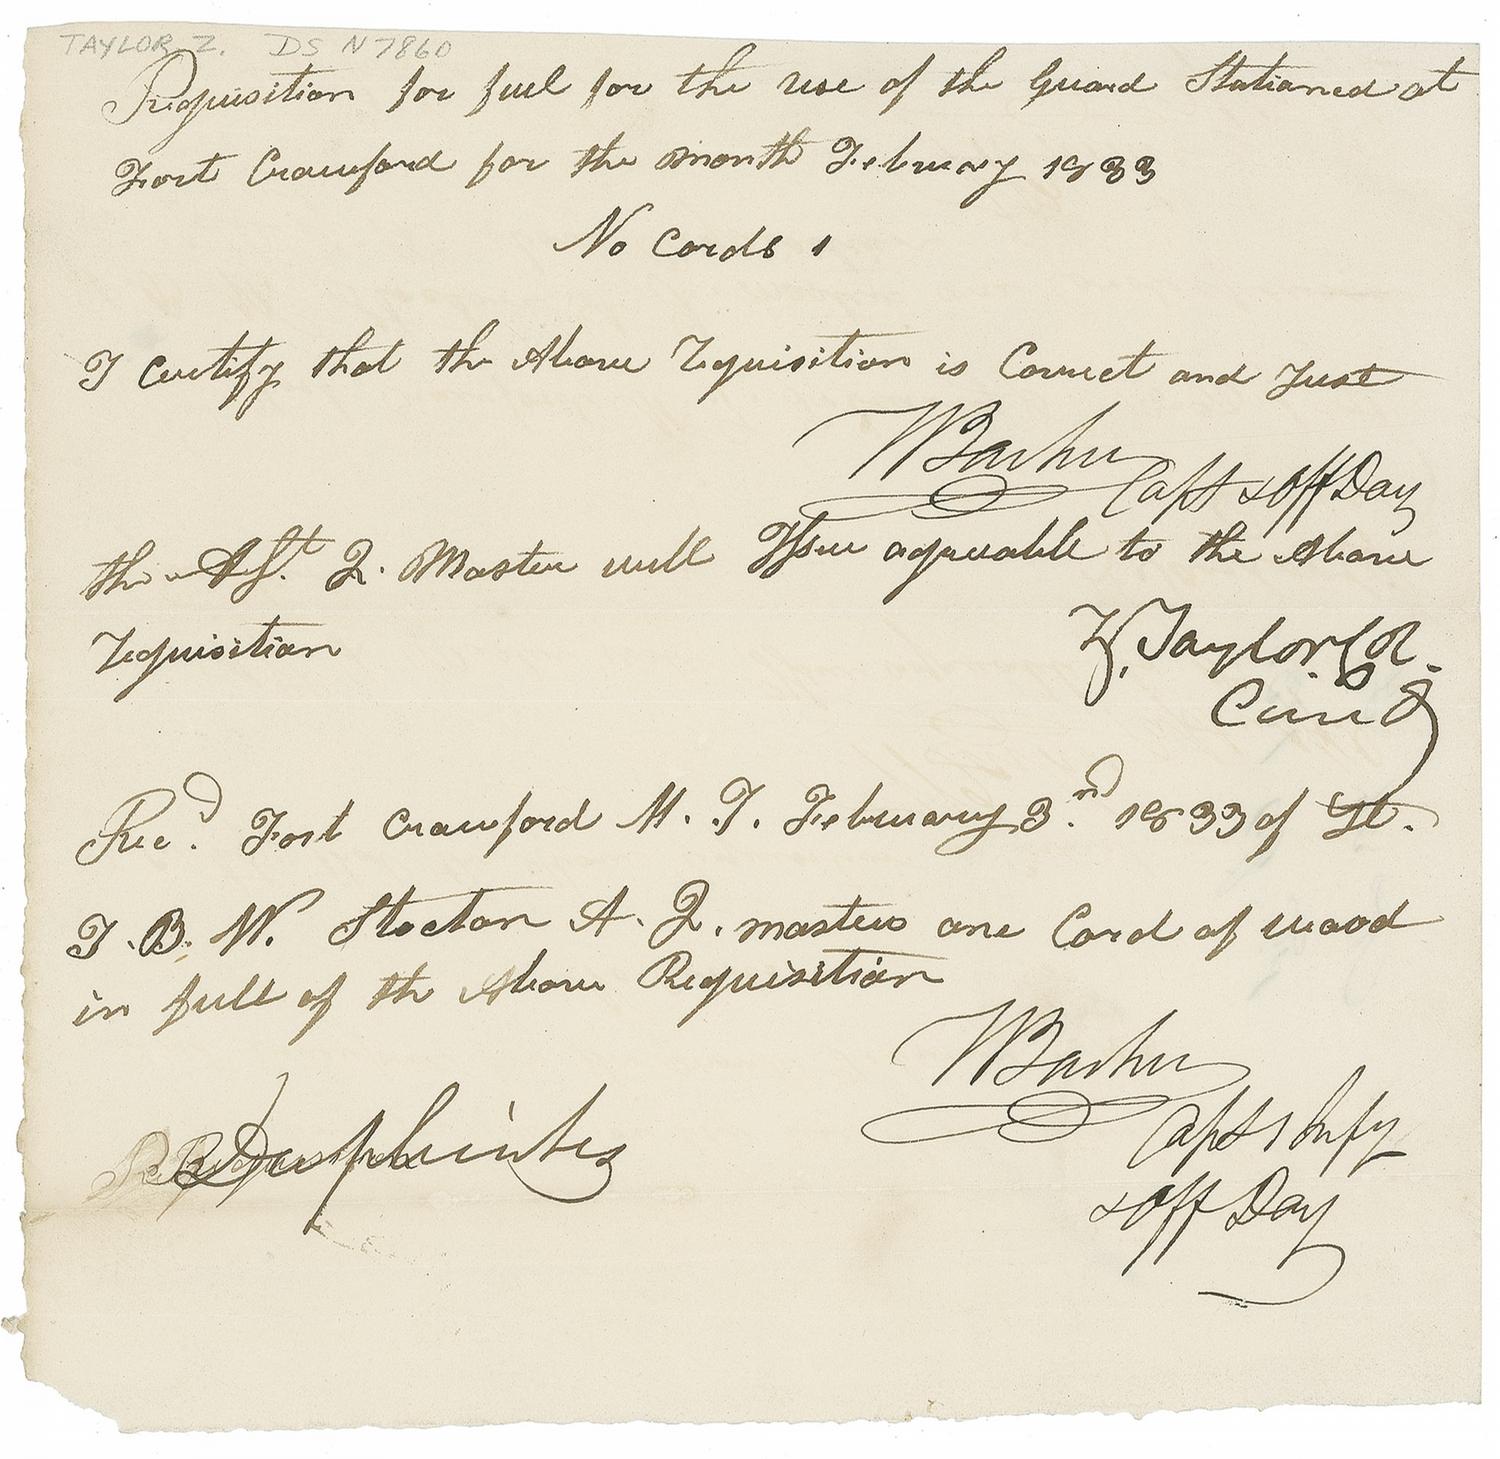 TAYLOR Z. DS N7860
Requisition for fuel for the use of the Guard Stationed at
Fort Crawford for the month February 1833
No Cords 1
I Certify that the Above requisition is Correct and Just
Capt & Off Day
the Asst. Q. Master will Issue agreeable to the Above
requisition
Z. Taylor Col.
Comd
Recd. Fort Crawford M. T. February 3rd. 1833 of Lt.
T. B. W. Stocton A. Q. masters one Cord of wood
in full of the Above Requisition
Capt 1 Infy
& Off Day